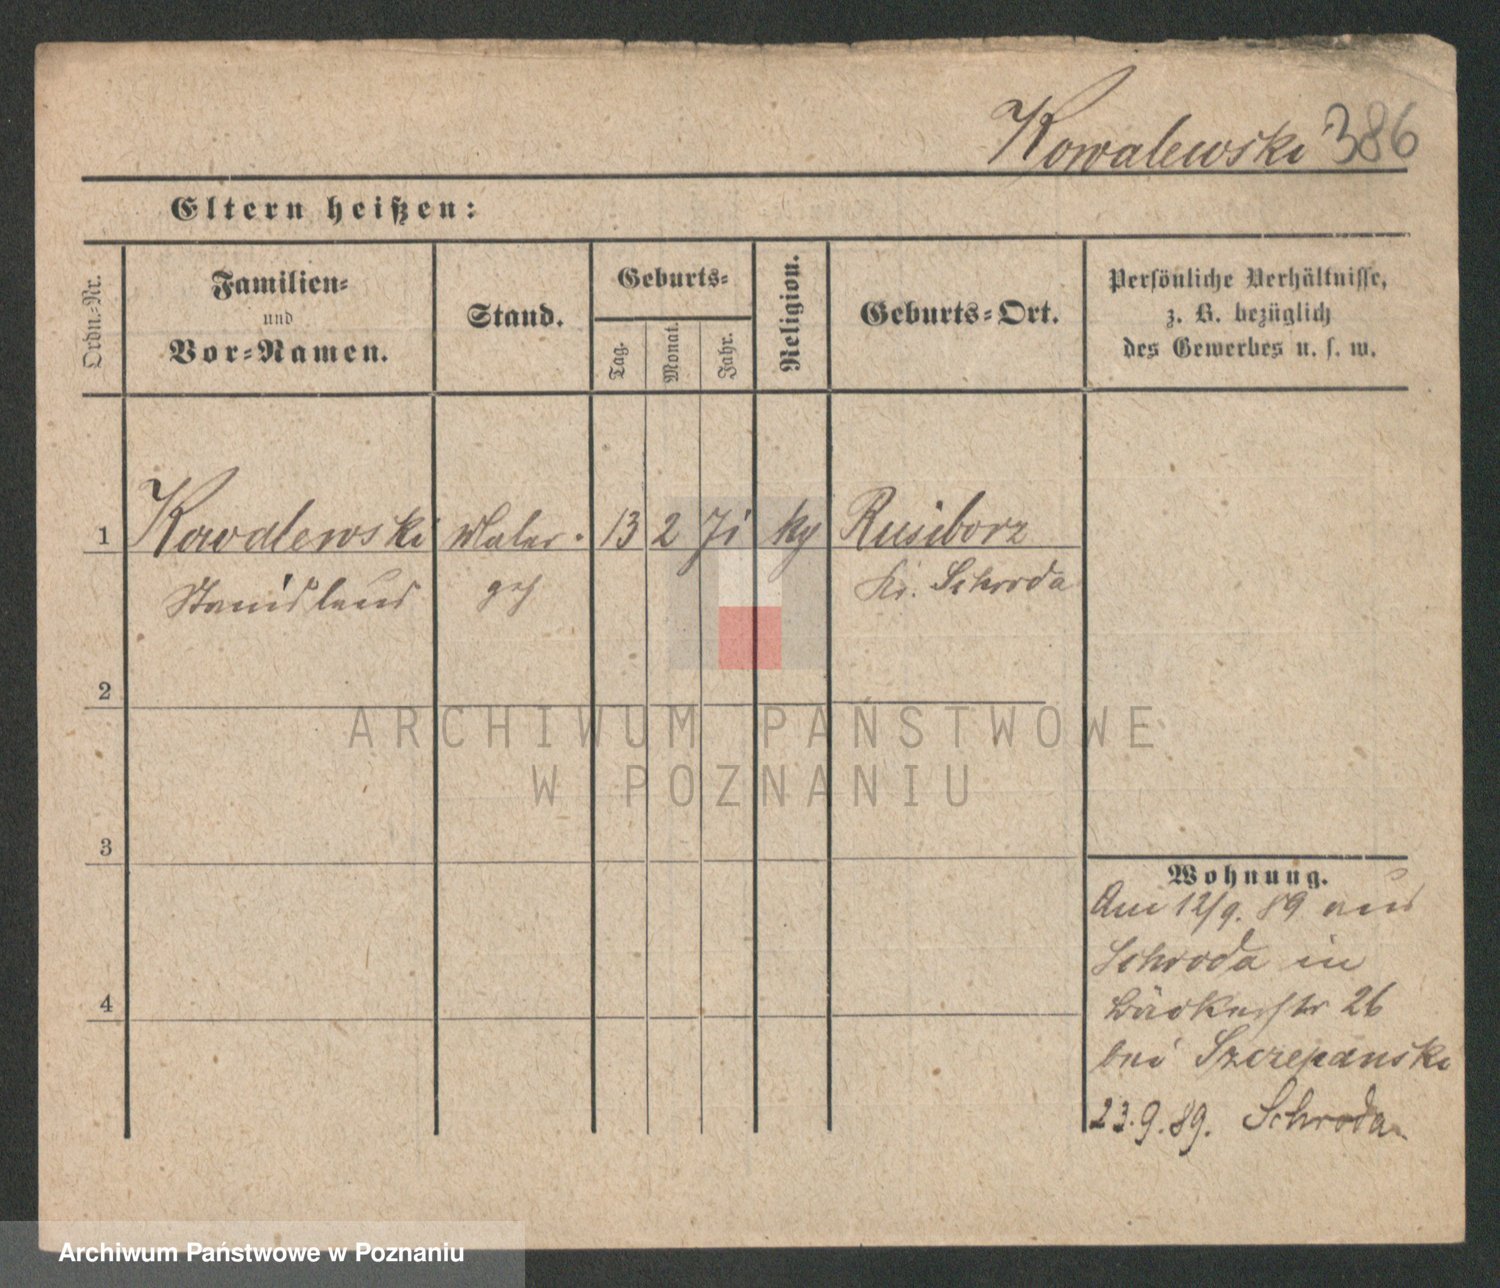 Kowalewski 386
Eltern heißen:
Ordn.-Nr.
Familien-
und
Vor-Namen.
Stand.
Geburts-
Tag.
Monat.
Jahr.
Religion.
Geburts-Ort.
Persönliche Verhältnisse,
z. B. bezüglich
des Gewerbes u. s. w.
1 Kowalewski Maler 13 2 71 Rusiborz
Stanislaus Kr. Schroda
2
3
4
Wohnung.
Am 12/9. 89 aus
Schroda in
Bäckerstr 26
bei Szczepanski
23.9.89. Schroda
ARCHIWUM PAŃSTWOWE
W POZNANIU
Archiwum Państwowe w Poznaniu